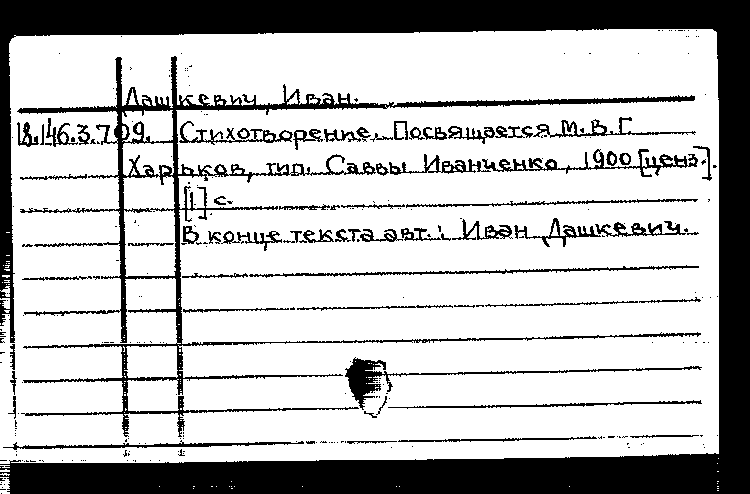 Дашкевич, Иван.
18.146.3.709. Стихотворение. Посвящается М.В.Г.
Харьков, тип. Саввы Иванченко, 1900 [ценз.].
[1] с.
В конце текста авт.: Иван Дашкевич.